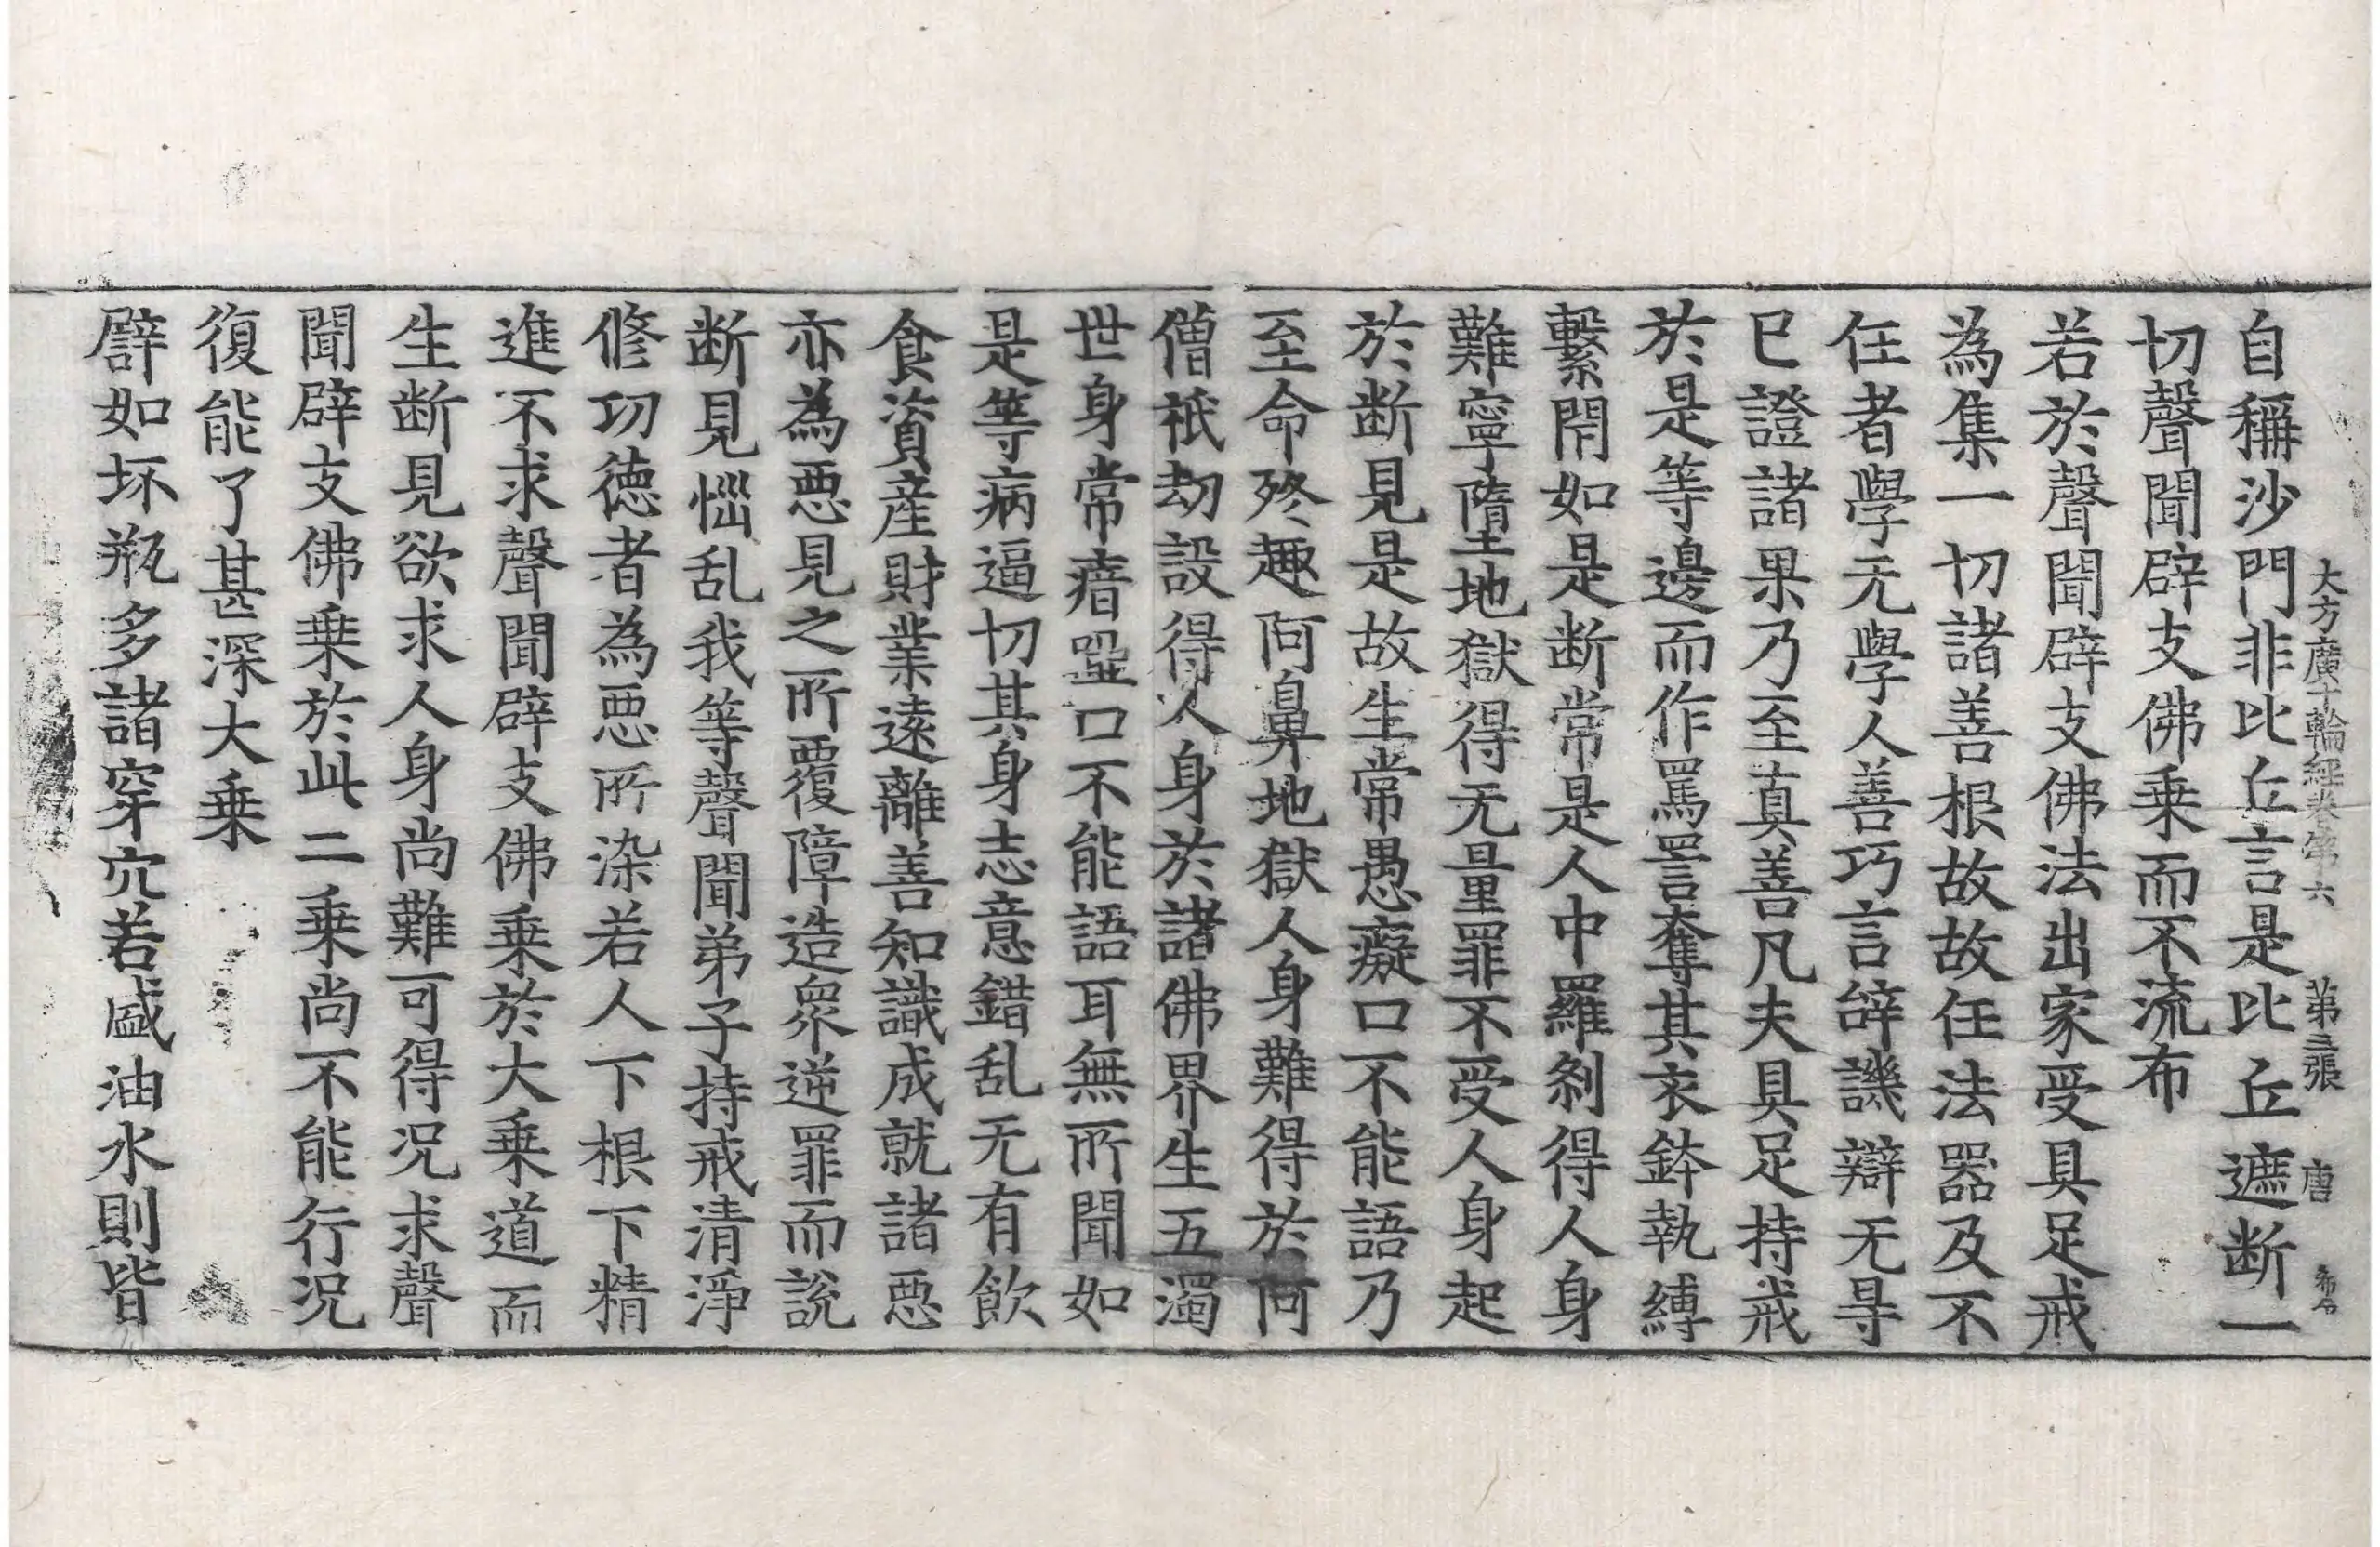 大方廣十輪經卷第六 第三張 唐
自稱沙門非比丘言是比丘遮断一
切聲聞辟支佛乗而不流布
若於聲聞辟支佛法出家受具足戒
為集一切諸善根故故任法器及不
任者學无學人善巧言辞譏辯无㝵
已證諸果乃至真善凡夫具足持戒
於是等邊而作罵詈奪其衣鉢執縛
繫閇如是断常是人中羅剎得人身
難寧墮地獄得无量罪不受人身起
於断見是故生常愚癡口不能語乃
至命終趣阿鼻地獄人身難得於阿
僧祇劫設得人身於諸佛界生五濁
世身常瘖瘂口不能語耳無所聞如
是等病逼切其身志意錯乱无有飲
食資産財業遠離善知識成就諸惡
亦為惡見之所覆障造眾逆罪而說
断見惱乱我等聲聞弟子持戒清淨
修功德者為惡所染若人下根下精
進不求聲聞辟支佛乗於大乗道而
生断見欲求人身尚難可得况求聲
聞辟支佛乗於此二乗尚不能行况
復能了甚深大乗
譬如坏瓶多諸穿穴若盛油水則皆